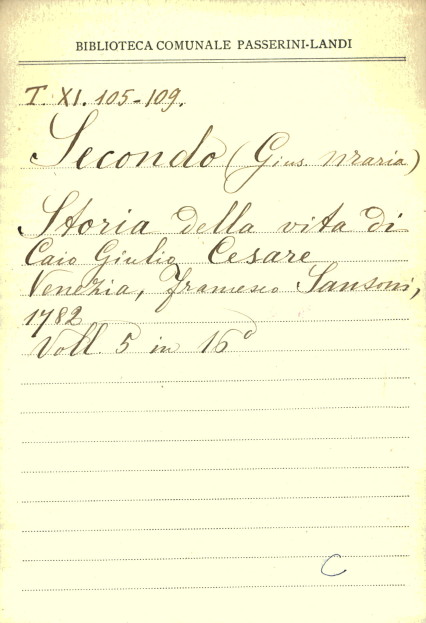 BIBLIOTECA COMUNALE PASSERINI-LANDI
T. XI. 105-109.
Secondo (Gius Maria)
Storia della vita di
Caio Giulio Cesare
Venezia, Francesco Sansoni,
1782
Voll. 5 in 16°
C